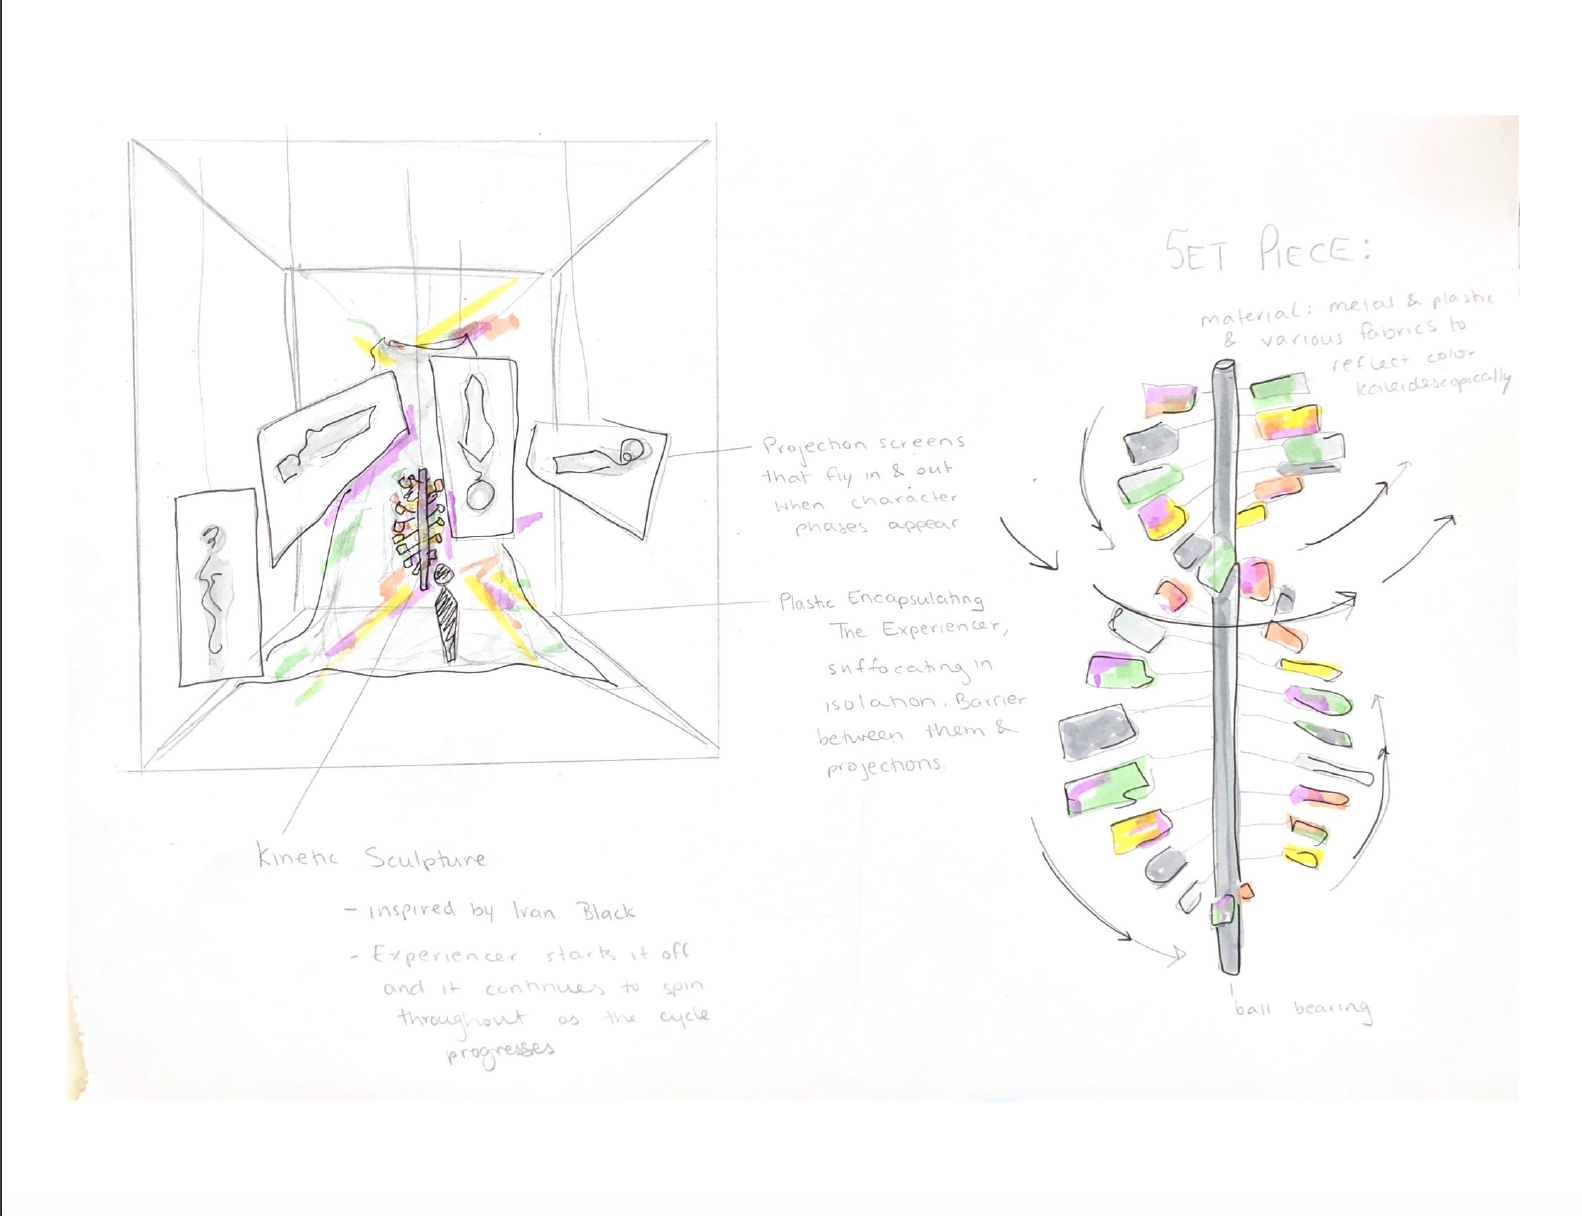 SET PIECE:
material: metal & plastic
& various fabrics to
reflect color
kaleidescopically
Projection screens
that fly in & out
when character
phases appear
Plastic Encapsulating
The Experiencer,
suffocating in
isolation. Barrier
between them &
projections.
Kinetic Sculpture
- inspired by Ivan Black
- Experiencer starts it off
and it continues to spin
throughout as the cycle
progresses
ball bearing